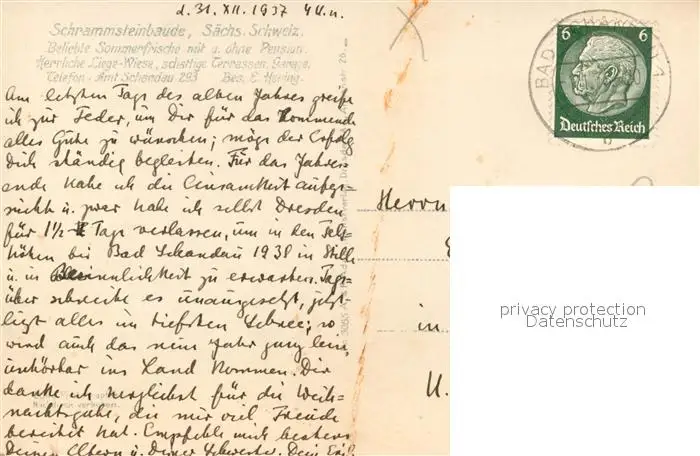 d. 31. XII. 1937 4 U. n.
Schrammsteinbaude, Sächs. Schweiz.
Beliebte Sommerfrische mit u. ohne Pension.
Herrliche Liege-Wiese, schattige Terrassen, Garage.
Telefon: Amt Schandau 293 Bes. E. Hering.
Am letzten Tage des alten Jahres greife
ich zur Feder, um Dir für das kommende
alles Gute zu wünschen; möge der Erfolg
Dich ständig begleiten. Für das Jahres-
ende habe ich die Einsamkeit aufge-
sucht u. zwar habe ich selbst Dresden
für 1½ Tage verlassen, um in den Fels-
höhen bei Bad Schandau 1938 in Stille
u. in Besinnlichkeit zu erwarten. Tags-
über schneite es unausgesetzt, jetzt
liegt alles im tiefsten Schnee; so
wird auch das neue Jahr ganz leise,
unhörbar ins Land kommen. Dir
danke ich herzlichst für die Weih-
nachtsgabe, die mir viel Freude
bereitet hat. Empfehle mich bestens
Deinen Eltern u. Deiner Schwester. Dein
6 6
Deutsches Reich
BAD SCHANDAU 1
b
Herrn
in
U.
privacy protection
Datenschutz